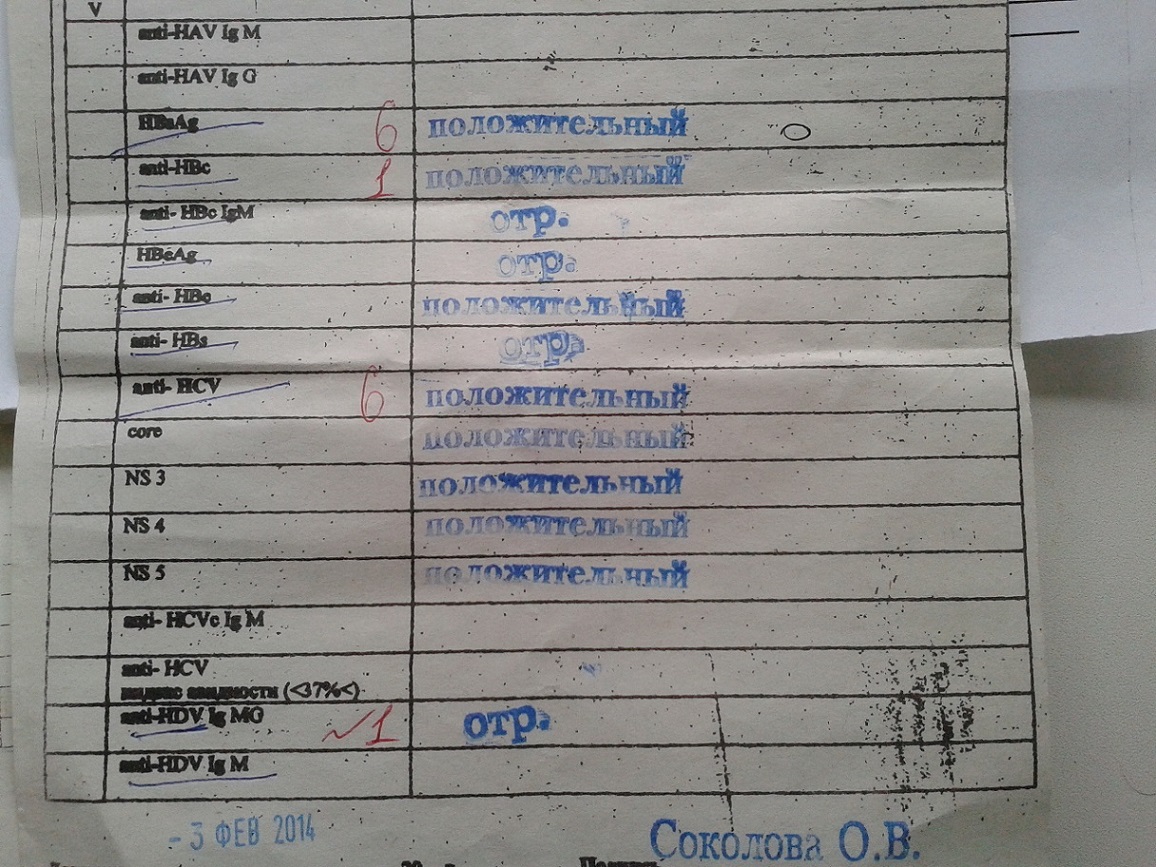 V
anti-HAV Ig M
anti-HAV Ig G
HBsAg 6 положительный
anti-HBc 1 положительный
anti- HBc IgM отр.
HBeAg отр.
anti- HBe положительный
anti- HBs отр.
anti- HCV 6 положительный
core положительный
NS 3 положительный
NS 4 положительный
NS 5 положительный
anti- HCVc Ig M
anti- HCV
индекс авидности (<37%<)
anti-HDV Ig MG ~1 отр.
anti-HDV Ig M
- 3 ФЕВ 2014 Соколова О.В.